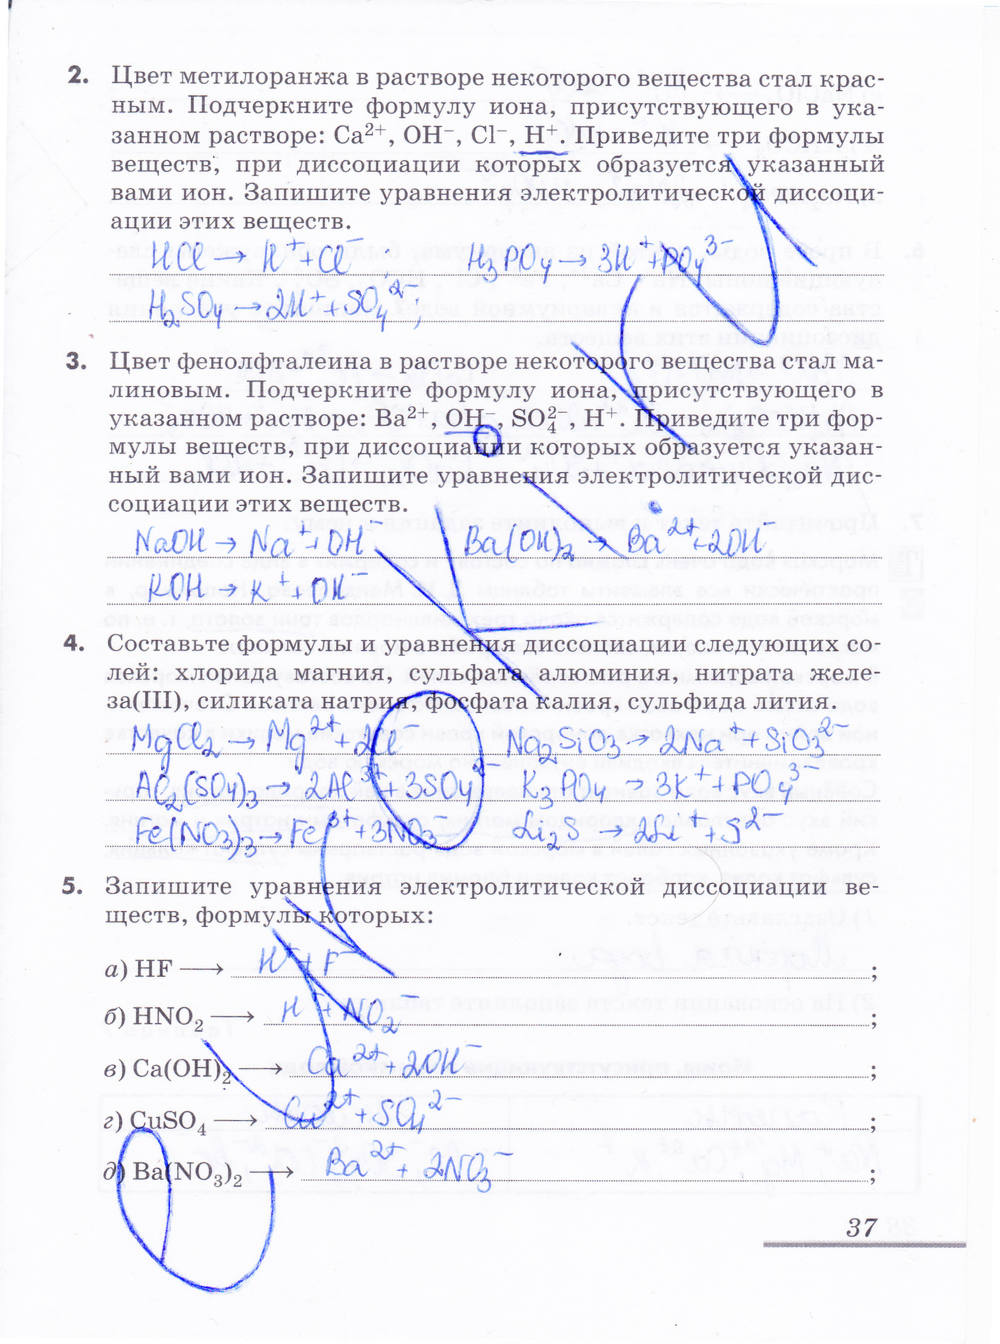 2. Цвет метилоранжа в растворе некоторого вещества стал крас-
ным. Подчеркните формулу иона, присутствующего в ука-
занном растворе: Ca²⁺, OH⁻, Cl⁻, H⁺. Приведите три формулы
веществ, при диссоциации которых образуется указанный
вами ион. Запишите уравнения электролитической диссоци-
ации этих веществ.
HCl → H⁺ + Cl⁻ H₃PO₄ → 3H⁺ + PO₄³⁻
H₂SO₄ → 2H⁺ + SO₄²⁻;
3. Цвет фенолфталеина в растворе некоторого вещества стал ма-
линовым. Подчеркните формулу иона, присутствующего в
указанном растворе: Ba²⁺, OH⁻, SO₄²⁻, H⁺. Приведите три фор-
мулы веществ, при диссоциации которых образуется указан-
ный вами ион. Запишите уравнения электролитической дис-
социации этих веществ.
NaOH → Na⁺ + OH⁻ Ba(OH)₂ → Ba²⁺ + 2OH⁻
KOH → K⁺ + OH⁻
4. Составьте формулы и уравнения диссоциации следующих со-
лей: хлорида магния, сульфата алюминия, нитрата желе-
за(III), силиката натрия, фосфата калия, сульфида лития.
MgCl₂ → Mg²⁺ + 2Cl⁻ Na₂SiO₃ → 2Na⁺ + SiO₃²⁻
Al₂(SO₄)₃ → 2Al³⁺ + 3SO₄²⁻ K₃PO₄ → 3K⁺ + PO₄³⁻
Fe(NO₃)₃ → Fe³⁺ + 3NO₃⁻ Li₂S → 2Li⁺ + S²⁻
5. Запишите уравнения электролитической диссоциации ве-
ществ, формулы которых:
а) HF ⟶ H⁺ + F⁻ ;
б) HNO₂ ⟶ H⁺ + NO₂⁻ ;
в) Ca(OH)₂ ⟶ Ca²⁺ + 2OH⁻ ;
г) CuSO₄ ⟶ Cu²⁺ + SO₄²⁻ ;
д) Ba(NO₃)₂ ⟶ Ba²⁺ + 2NO₃⁻ ;
37